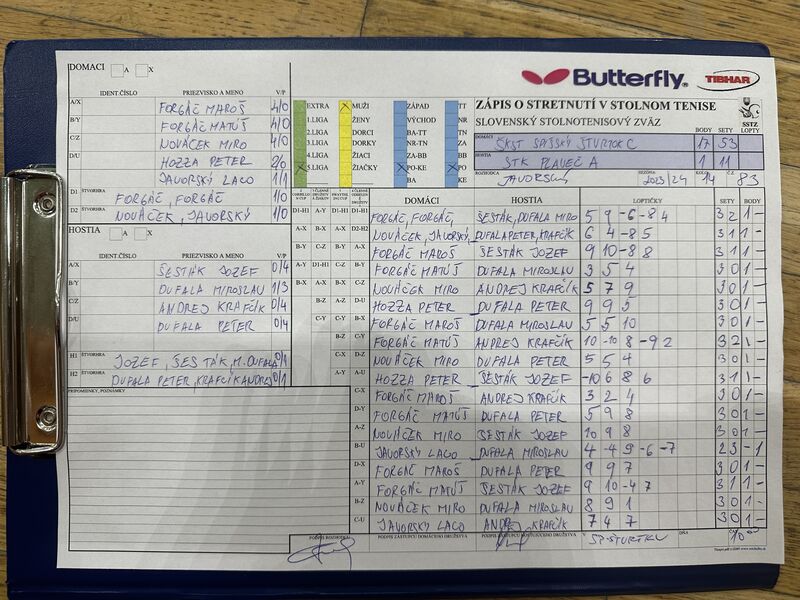 Butterfly
TIBHAR
DOMACI A X
IDENT.ČÍSLO PRIEZVISKO A MENO V/P
A/X FORGÁČ MAROŠ 4/0
B/Y FORGÁČ MATÚŠ 4/0
C/Z NOVÁČEK MIRO 4/0
D/U HOZZA PETER 2/0
JAVORSKÝ LACO 1/1
D1 ŠTVORHRA FORGÁČ, FORGÁČ 1/0
NOVÁČEK, JAVORSKÝ 1/0
HOSTIA A X
IDENT.ČÍSLO PRIEZVISKO A MENO V/P
A/X ŠESTÁK JOZEF 0/4
B/Y DUFALA MIROSLAV 1/3
C/Z ANDREJ KRAFČÍK 0/4
D/U DUFALA PETER 0/4
H1 ŠTVORHRA JOZEF, ŠESTÁK, M. DUFALA 0/1
H2 ŠTVORHRA DUFALA PETER, KRAFČÍK ANDREJ 0/1
PRIPOMIENKY, POZNÁMKY
EXTRA X MUŽI ZÁPAD TT
1.LIGA ŽENY VÝCHOD NR
2.LIGA DORCI BA-TT TN
3.LIGA DORKY NR-TN ZA
4.LIGA ŽIACI ZA-BB BB
X 5.LIGA ŽIAČKY X PO-KE X PO
BA KE
ZÁPIS O STRETNUTÍ V STOLNOM TENISE
SLOVENSKÝ STOLNOTENISOVÝ ZVÄZ
SSTZ
BODY SETY LOPTY
DOMÁCI ŠKST SPIŠSKÝ ŠTVRTOK C 17 53
HOSTIA STK PLAVEČ A 1 11
ROZHODCA JAVORSKÝ SEZÓNA 2023/24 KOLO 14 Č. 83
DOMÁCI HOSTIA LOPTIČKY SETY BODY
D1-H1 FORGÁČ, FORGÁČ, ŠESTÁK, DUFALA MIRO 5 9 -6 -8 4 3 2 1 -
NOVÁČEK, JAVORSKÝ, DUFALA PETER, KRAFČÍK 6 4 -8 5 3 1 1 -
FORGÁČ MAROŠ ŠESTÁK JOZEF 9 10 -8 8 3 1 1 -
FORGÁČ MATÚŠ DUFALA MIROSLAV 3 5 4 3 0 1 -
NOVÁČEK MIRO ANDREJ KRAFČÍK 5 7 9 3 0 1 -
HOZZA PETER DUFALA PETER 9 9 5 3 0 1 -
FORGÁČ MAROŠ DUFALA MIROSLAV 5 5 10 3 0 1 -
FORGÁČ MATÚŠ ANDREJ KRAFČÍK 10 -10 8 -9 2 3 2 1 -
NOVÁČEK MIRO DUFALA PETER 5 5 4 3 0 1 -
HOZZA PETER ŠESTÁK JOZEF -10 6 8 6 3 1 1 -
FORGÁČ MAROŠ ANDREJ KRAFČÍK 3 2 4 3 0 1 -
FORGÁČ MATÚŠ DUFALA PETER 5 9 8 3 0 1 -
NOVÁČEK MIRO ŠESTÁK JOZEF 10 9 8 3 0 1 -
JAVORSKÝ LACO DUFALA MIROSLAV 4 -4 9 -6 -7 2 3 - 1
FORGÁČ MAROŠ DUFALA PETER 9 9 7 3 0 1 -
FORGÁČ MATÚŠ ŠESTÁK JOZEF 9 10 -4 7 3 1 1 -
NOVÁČEK MIRO DUFALA MIROSLAV 8 9 1 3 0 1 -
JAVORSKÝ LACO ANDREJ KRAFČÍK 7 4 7 3 0 1 -
PODPIS ROZHODCU PODPIS ZÁSTUPCU DOMÁCEHO DRUŽSTVA PODPIS ZÁSTUPCU HOSŤUJÚCEHO DRUŽSTVA V SP. ŠTVRTKU DŇA